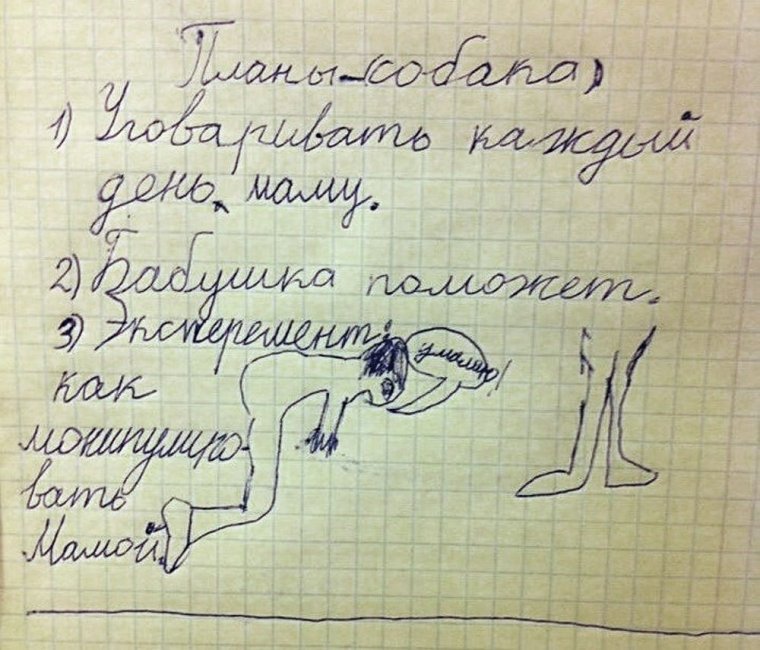 Планы-(собака)
1) Уговаривать каждый
день маму.
2) Бабушка поможет.
3) Эксперемент:
умаляю!
как
монипулиро-
вать
Мамой.